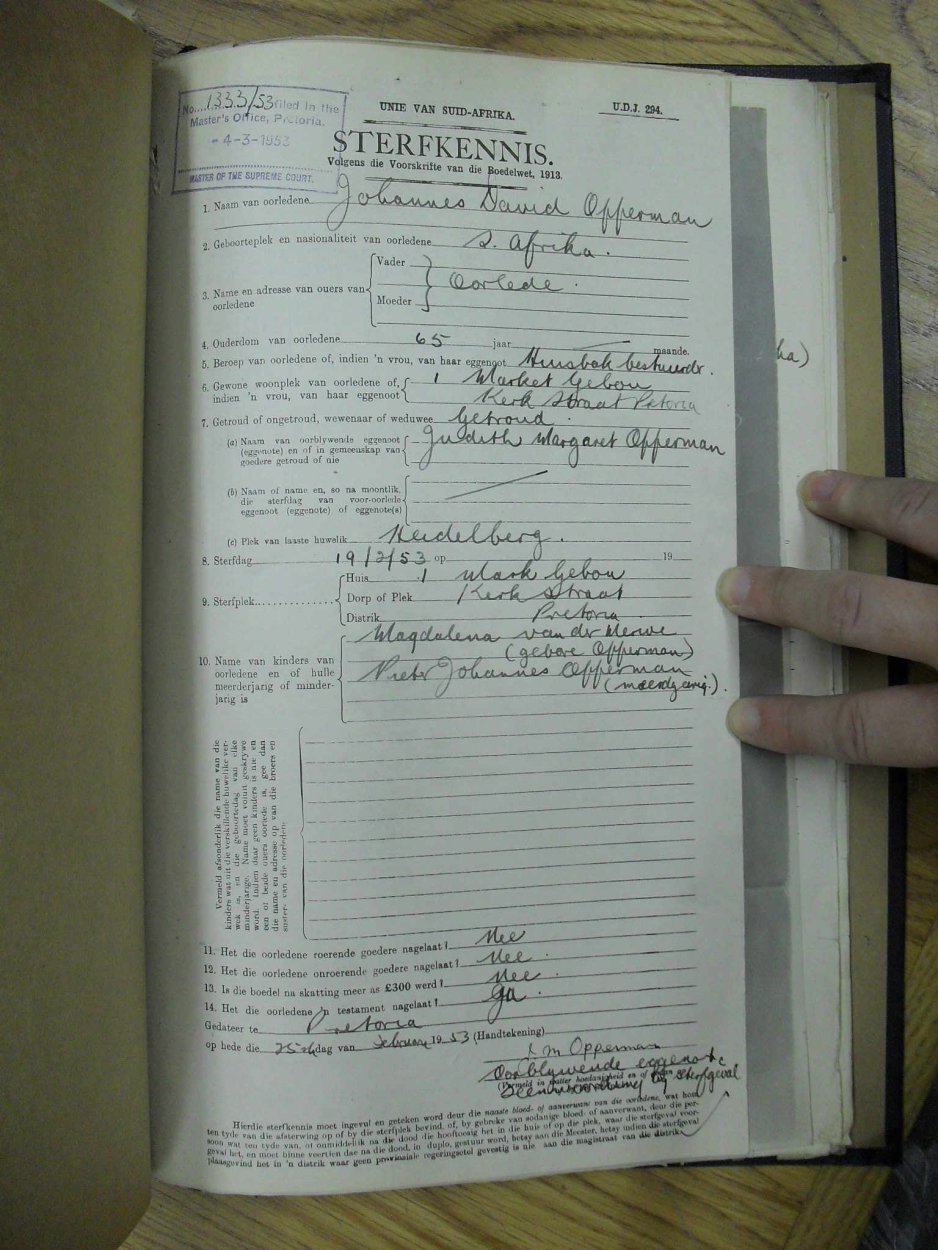 No. 1333/53 filed in the
Master's Office, Pretoria.
- 4-3-1953
MASTER OF THE SUPREME COURT.
UNIE VAN SUID-AFRIKA.
U.D.J. 294.
STERFKENNIS.
Volgens die Voorskrifte van die Boedelwet, 1913.
1. Naam van oorledene Johannes David Opperman
2. Geboorteplek en nasionaliteit van oorledene S. Afrika.
3. Name en adresse van ouers van oorledene
Vader
Oorlede.
Moeder
4. Ouderdom van oorledene 65 jaar maande.
5. Beroep van oorledene of, indien 'n vrou, van haar eggenoot
6. Gewone woonplek van oorledene of, 1 Market Gebou
indien 'n vrou, van haar eggenoot Kerk Straat Pretoria
7. Getroud of ongetroud, wewenaar of weduwee Getroud.
(a) Naam van oorblywende eggenoot Judith Margaret Opperman
(eggenote) en of in gemeenskap van
goedere getroud of nie
(b) Naam of name en, so na moontlik,
die sterfdag van voor-oorlede
eggenoot (eggenote) of eggenote(s)
(c) Plek van laaste huwelik Heidelberg.
8. Sterfdag 19/2/53 op 19
9. Sterfplek
Huis 1 Mark Gebou
Dorp of Plek Kerk Straat
Distrik Pretoria
Magdalena van der Merwe
(gebore Opperman)
10. Name van kinders van Pieter Johannes Opperman
oorledene en of hulle (meerdjarig.).
meerderjarig of minder-
jarig is
Vermeld afsonderlik die name van die
kinders wat uit die verskillende huwelike ver-
wek is, en die geboortedag van elke
minderjarige. Name moet voluit geskrywe
word. Indien daar geen kinders is nie en
een of beide ouers oorlede is, gee dan
die name en adresse op van die broers en
susters van die oorledene.
11. Het die oorledene roerende goedere nagelaat? Nee
12. Het die oorledene onroerende goedere nagelaat? Nee.
13. Is die boedel na skatting meer as £300 werd? Nee.
14. Het die oorledene 'n testament nagelaat? Ja.
Gedateer te Pretoria
op hede die 25ste dag van Februarie 1953 (Handtekening)
J M Opperman
Oorblywende eggenote
(Vermeld in watter hoedanigheid en of
teenwoordig by sterfgeval
Hierdie sterfkennis moet ingevul en geteken word deur die naaste bloed- of aanverwant van die oorledene, wat hom
ten tyde van die afsterwing op of by die sterfplek bevind, of, by gebreke van sodanige bloed- of aanverwant, deur die per-
soon wat ten tyde van, of onmiddellik na die dood die hooftoesig het in die huis of op die plek, waar die sterfgeval voor-
geval het, en moet binne veertien dae na die dood, in duplo, gestuur word, hetsy aan die Meester, hetsy indien die sterfgeval
plaasgevind het in 'n distrik waar geen provinsiale regeringsetel gevestig is nie aan die magistraat van die distrik.